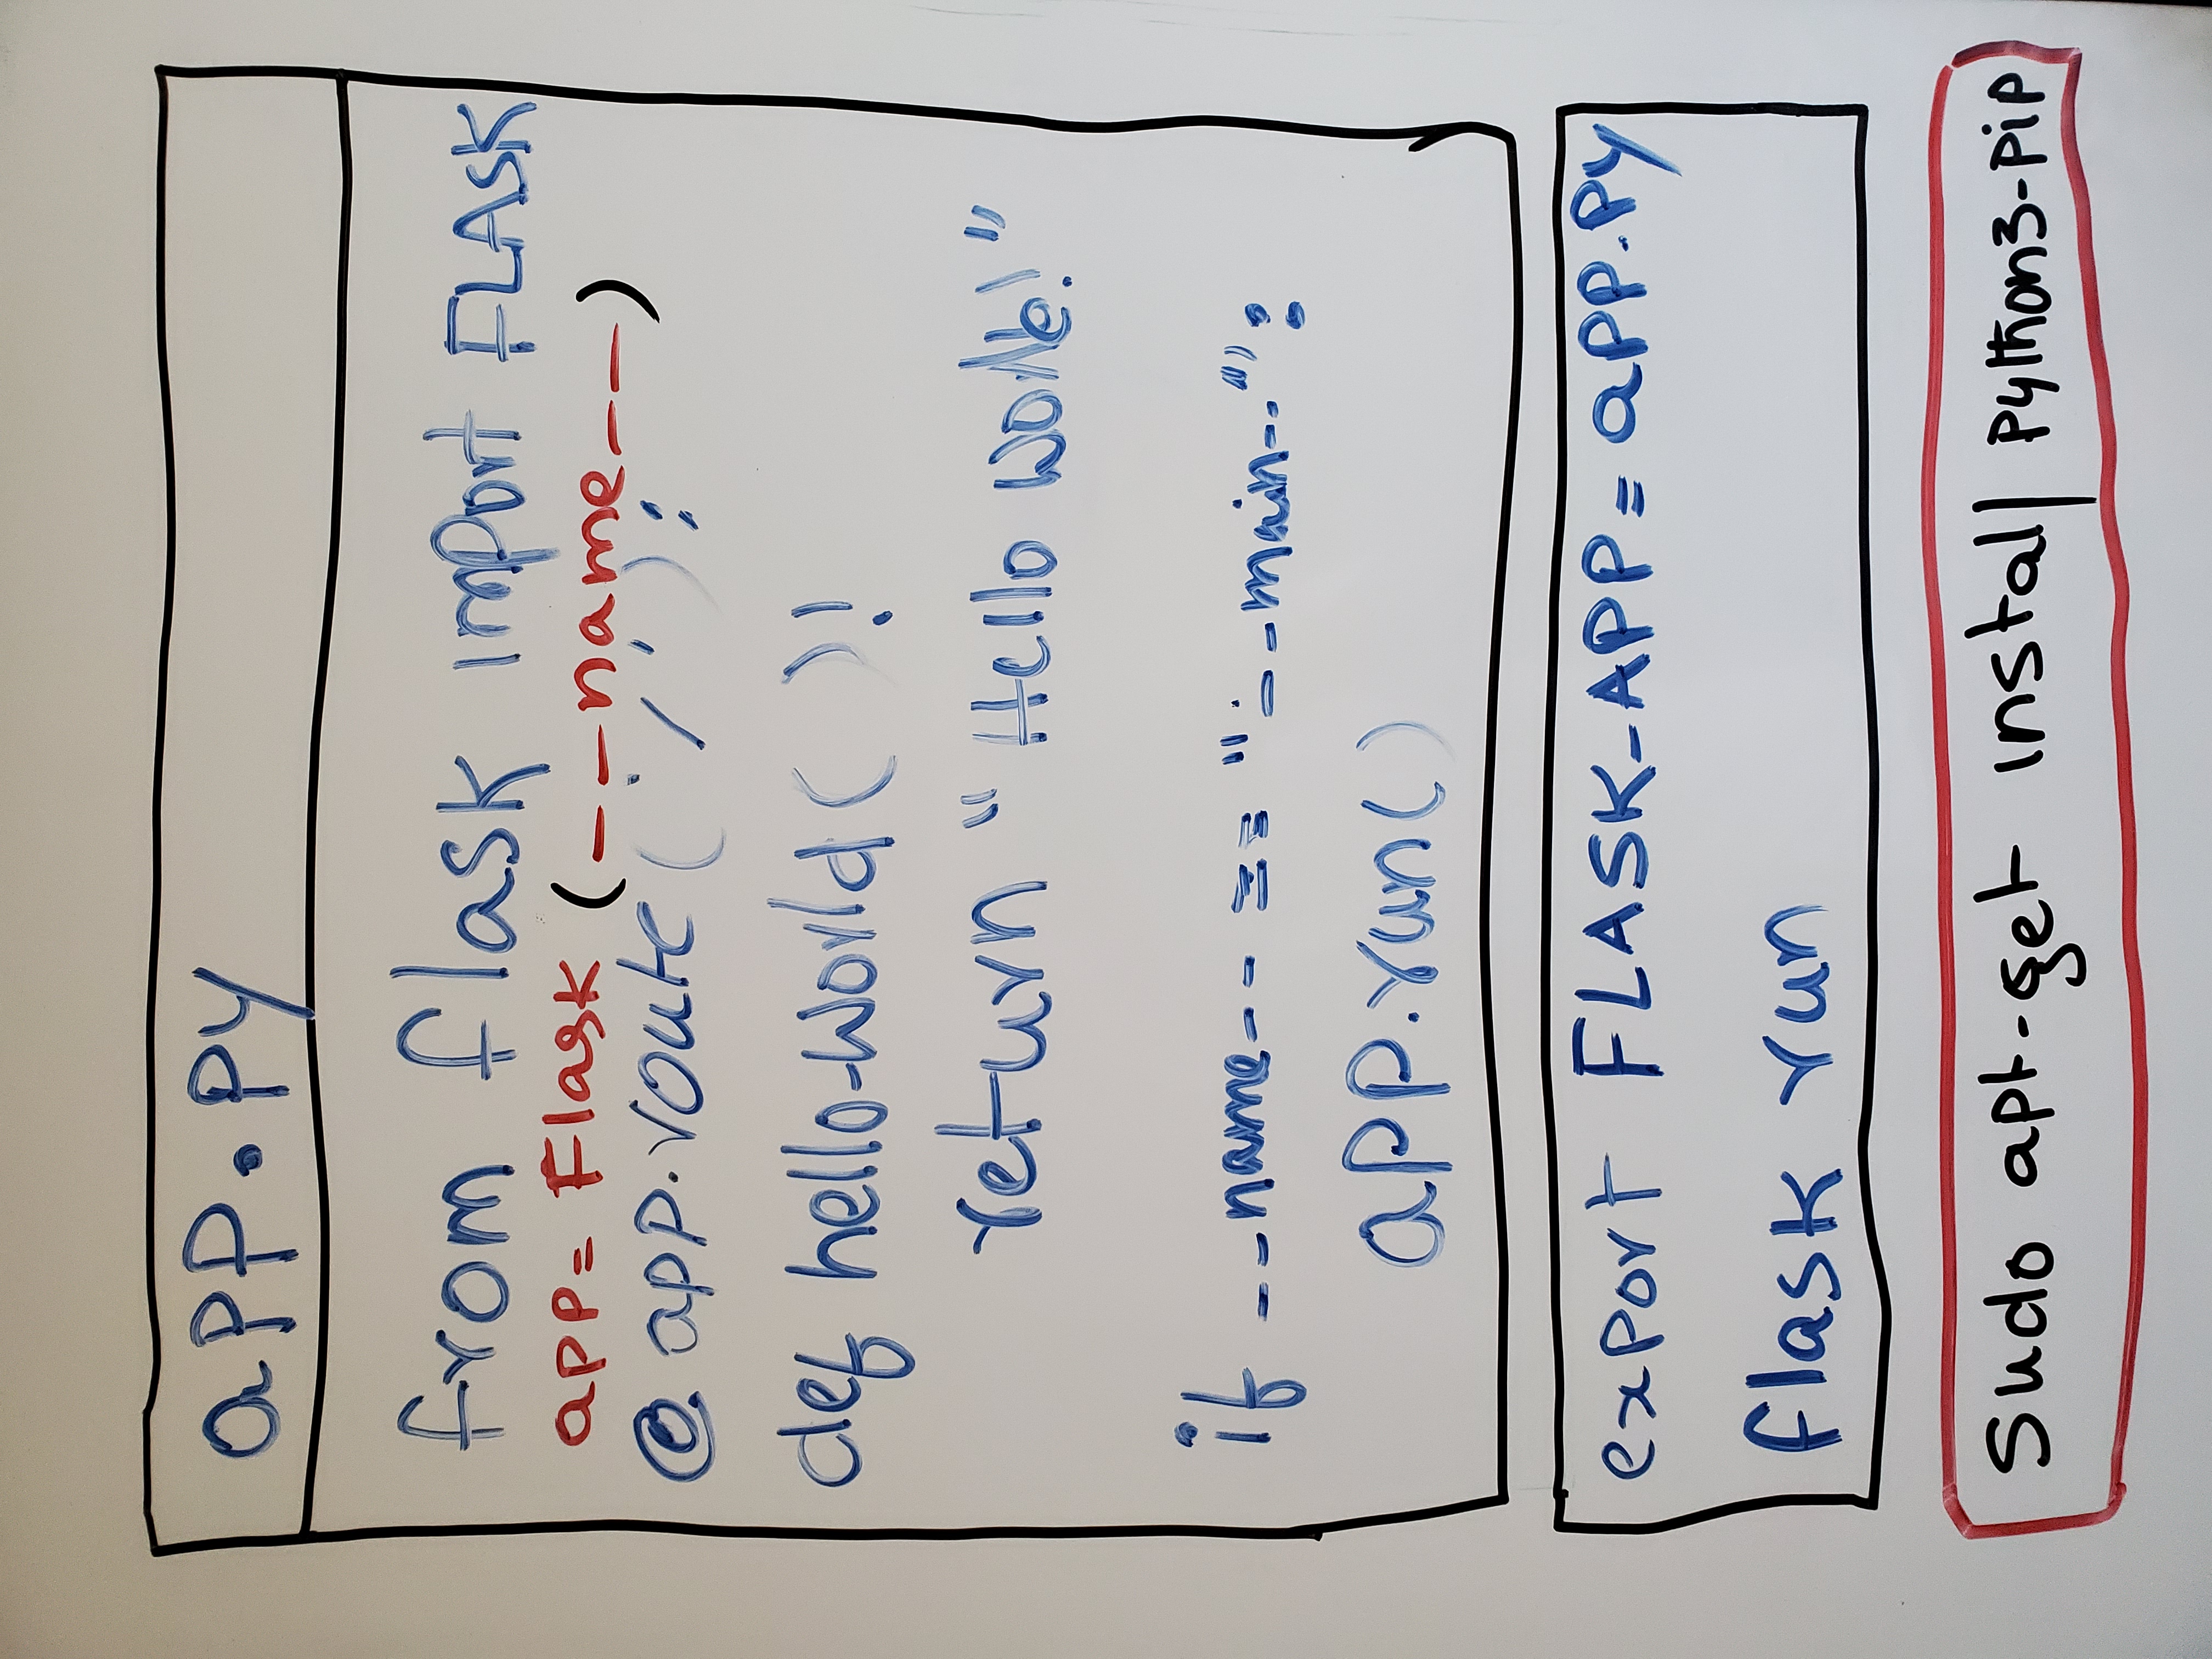 app.py
from flask import FLASK
app= Flask (__name__)
@ app.route( '/' ):
def hello-world( )!
return "Hello World!"
if __name__ == "__main__":
app.run()
export FLASK_APP= app.py
flask run
Sudo apt-get install python3-pip